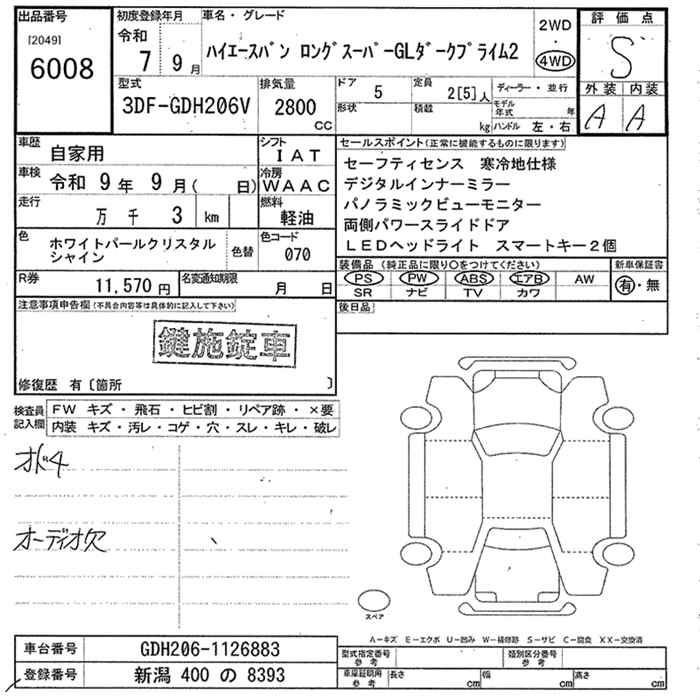 出品番号
[2049]
6008
初度登録年月
令和
7年 9月
車名・グレード
ハイエースバン ロングスーパーGLダークプライム2
2WD
・
4WD
評価点
S
外装 内装
A A
型式
3DF-GDH206V
排気量
2800
CC
ドア 5
形状
定員 2[5]人
積載 kg
ディーラー・並行
モデル年式 年
ハンドル 左・右
車歴
自家用
シフト
IAT
車検
令和 9年 9月( 日)
冷房
WAAC
走行
万 千 3 km
燃料
軽油
色
ホワイトパールクリスタル
シャイン
色替
色コード
070
R券
11,570円
名変通知期限
月 日
セールスポイント(正常に機能するものに限ります)
セーフティセンス 寒冷地仕様
デジタルインナーミラー
パノラミックビューモニター
両側パワースライドドア
LEDヘッドライト スマートキー2個
装備品(純正品に限り○をつけてください)
PS PW ABS エアB AW
SR ナビ TV カワ
新車保証書
有・無
後日品
注意事項申告欄(不具合内容等は具体的に記入して下さい)
鍵施錠車
修復歴 有〔箇所 〕
検査員
記入欄
FW キズ・飛石・ヒビ割・リペア跡・×要
内装 キズ・汚レ・コゲ・穴・スレ・キレ・破レ
オーディオ欠
スペア
A-キズ E-エクボ U-凹み W-補修跡 S-サビ C-腐食 XX-交換済
車台番号
GDH206-1126883
登録番号
新潟 400 の 8393
型式指定番号
参考
類別区分番号
参考
車庫証明用
参考
長さ cm
幅 cm
高さ cm